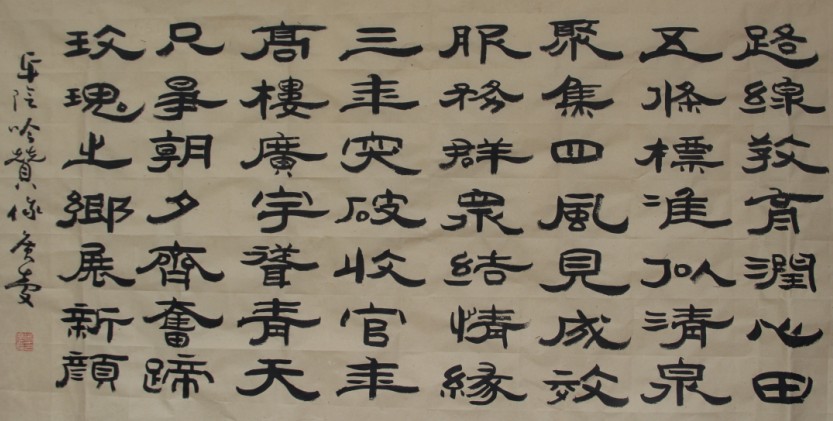 路線教育潤心田
五條標准似清泉
聚集四風見成效
服務群眾結情緣
三年突破收官年
高樓廣宇聳青天
只爭朝夕齊奮蹄
玫瑰之鄉展新顏
平陰吟贊